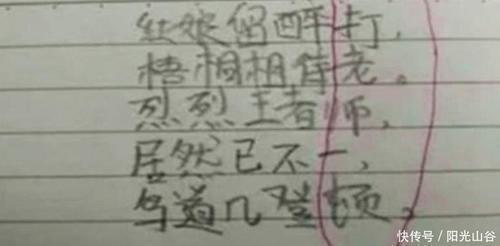 红娘留醉打，
梧桐相伴老。
烈烈王者师，
居然已不一，
鸟道几登顿。
快传号／阳光山谷